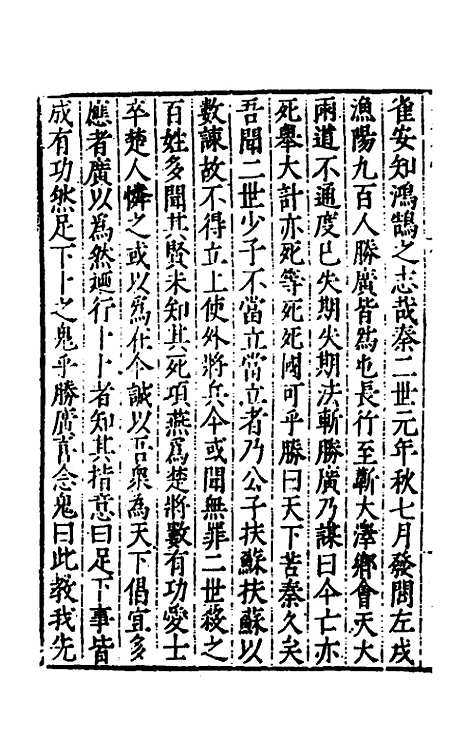 雀安知鴻鵠之志哉秦二世元年秋七月發閭左戍
漁陽九百人勝廣皆爲屯長行至蘄大澤鄉會天大
雨道不通度已失期失期法斬勝廣乃謀曰今亡亦
死舉大計亦死等死死國可乎勝曰天下苦秦久矣
吾聞二世少子不當立當立者乃公子扶蘇扶蘇以
數諫故不得立上使外將兵今或聞無罪二世殺之
百姓多聞其賢未知其死項燕爲楚將數有功愛士
卒楚人憐之或以爲在今誠以吾衆為天下倡宜多
應者廣以為然迺行卜卜者知其指意曰足下事皆
成有功然足下卜之鬼乎勝廣喜念鬼曰此教我先